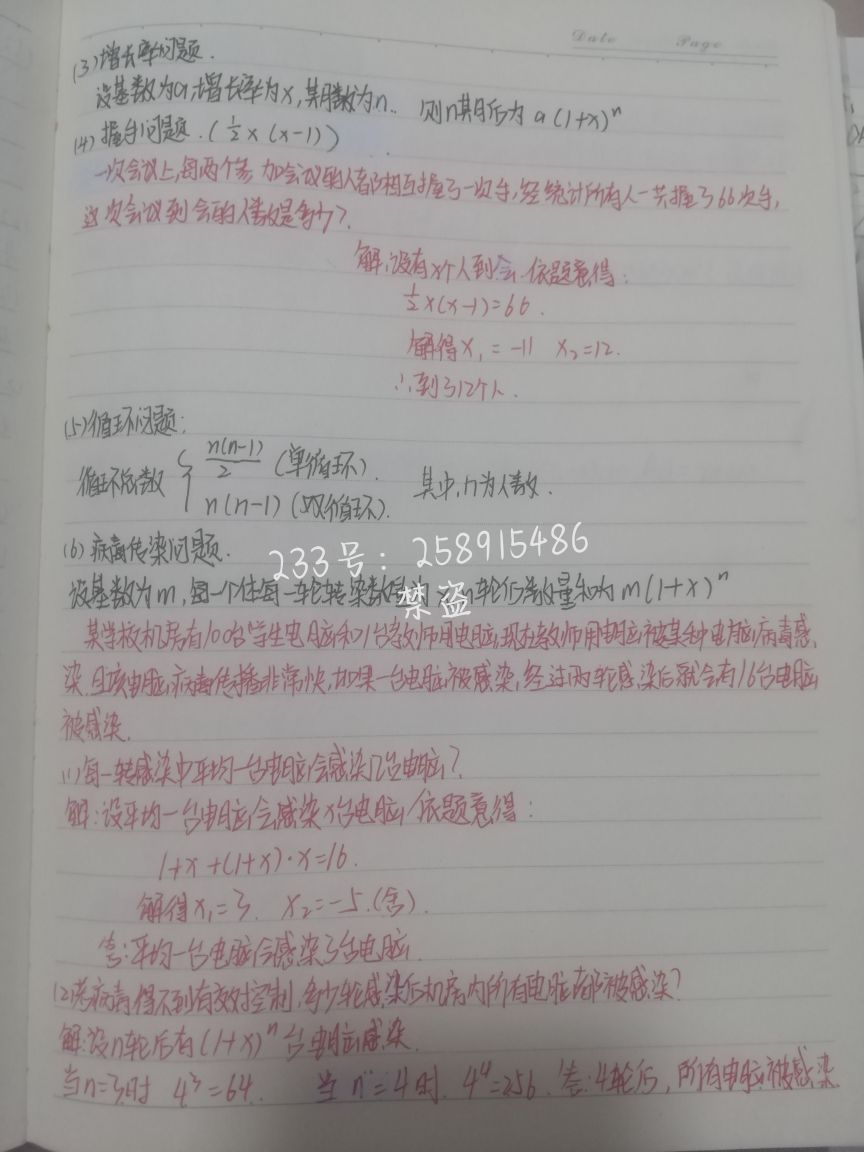 Date Page
(3)增长率问题.
设基数为a,增长率为x,某月数为n. 则n某月后为 a(1+x)ⁿ
(4)握手问题.(½x(x-1))
一次会议上,每两个参加会议的人都相互握了一次手,经统计所有人一共握了66次手,
这次会议到会的人数是多少?
解:设有x个人到会.依题意得:
½x(x-1)=66.
解得x₁=-11 x₂=12.
∴到了12个人.
(5)循环问题:
循环总数 { n(n-1)/2 (单循环).
n(n-1)(双循环). 其中,n为人数.
(6)病毒传染问题.
233号:258915486
禁盗
设基数为m,每一个体每一轮转染数量为 n轮后总数量和为m(1+x)ⁿ
某学校机房有100台学生电脑和1台教师用电脑,现在教师用电脑被某种电脑病毒感
染.且该电脑病毒传播非常快,如果一台电脑被感染,经过两轮感染后就会有16台电脑
被感染.
(1)每一轮感染中平均一台电脑会感染几台电脑?
解:设平均一台电脑会感染x台电脑,依题意得:
1+x+(1+x)·x=16.
解得x₁=3. x₂=-5.(舍).
答:平均一台电脑会感染3台电脑
(2)若病毒得不到有效控制,多少轮感染后机房内所有电脑都被感染?
解:设n轮后有(1+x)ⁿ台电脑感染.
当n=3时 4³=64. 当n=4时. 4⁴=256. 答:4轮后,所有电脑被感染.